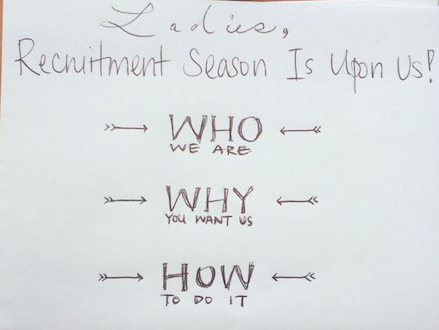 Ladies,
Recruitment Season Is Upon Us!
WHO
WE ARE
WHY
YOU WANT US
HOW
TO DO IT